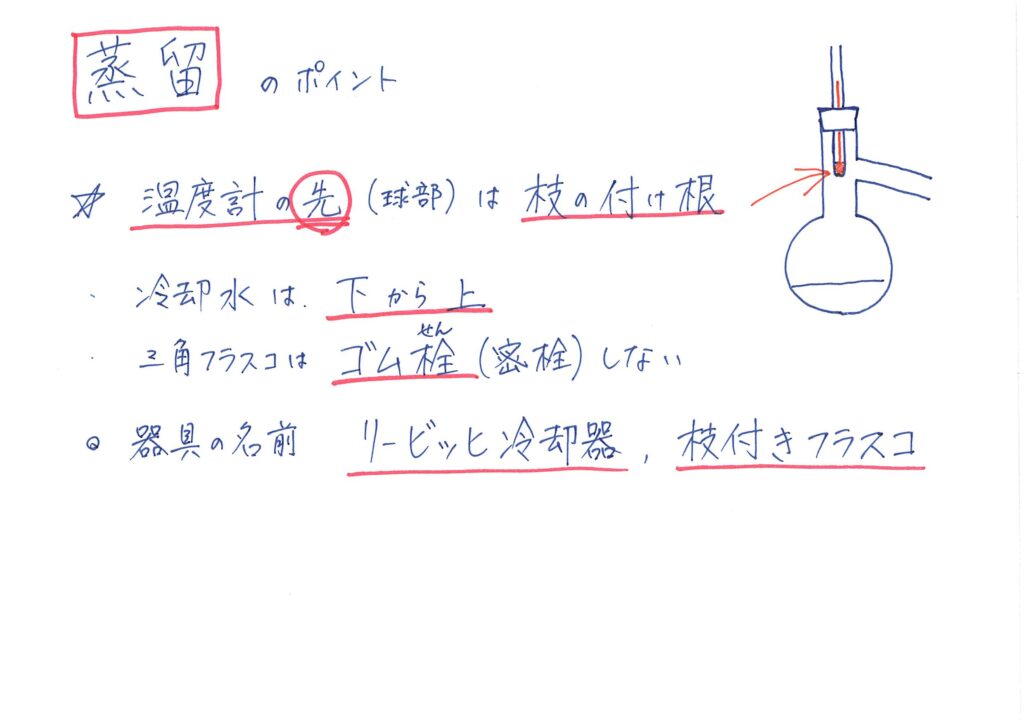 蒸留 のポイント
☆ 温度計の先(球部)は 枝の付け根
・ 冷却水は、下から上
せん
・ 三角フラスコは ゴム栓(密栓)しない
◎ 器具の名前 リービッヒ冷却器, 枝付きフラスコ